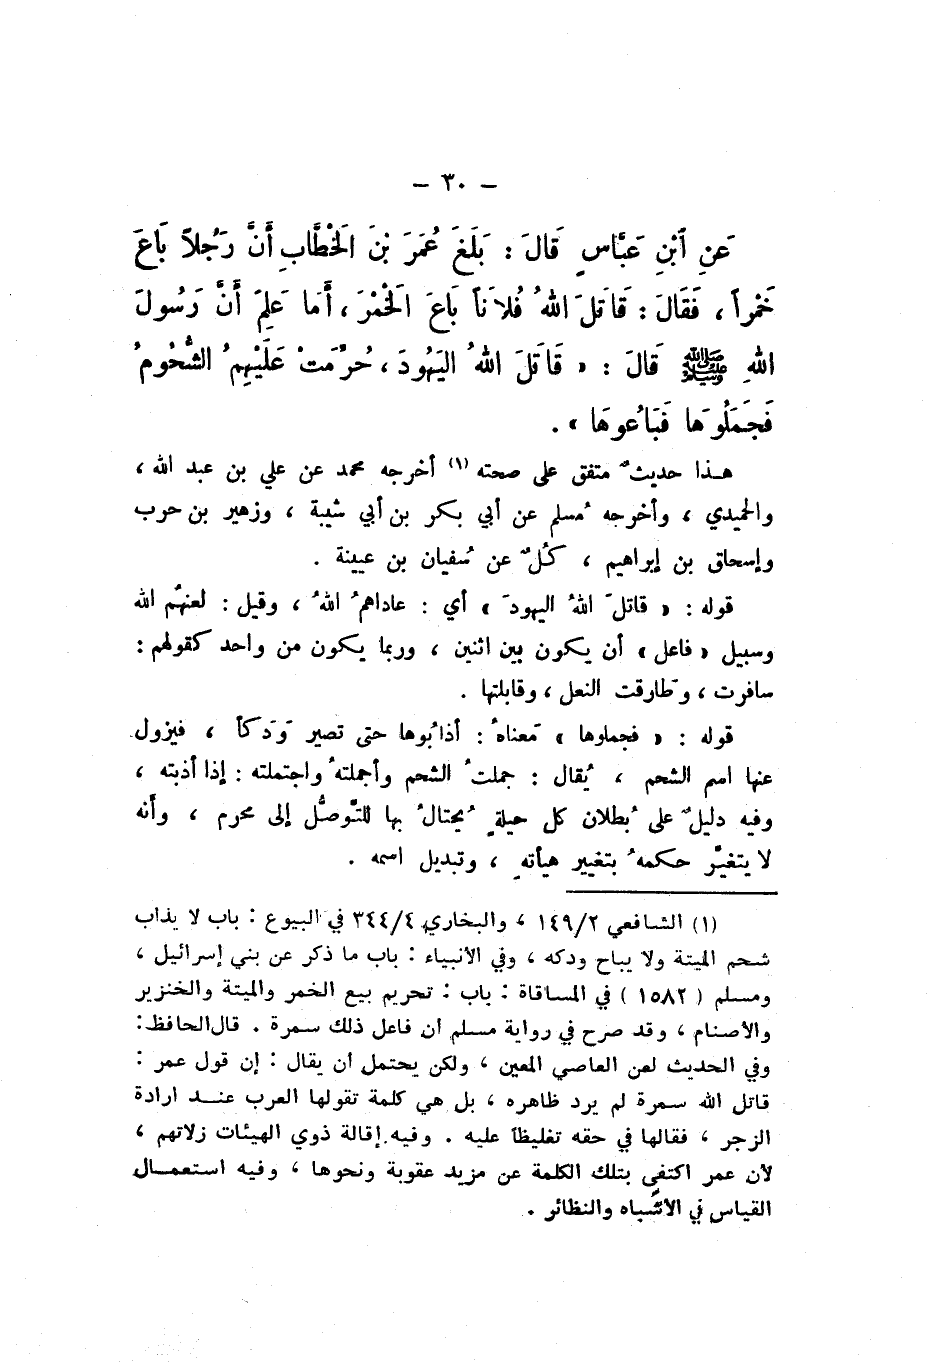 – ٣٠ –
عَنِ ٱبْنِ عَبَّاسٍ قَالَ : بَلَغَ عُمَرَ بْنَ الْخَطَّابِ أَنَّ رَجُلاً بَاعَ
خَمْراً ، فَقَالَ : قَاتَلَ اللهُ فُلاَناً بَاعَ الْخَمْرَ ، أَمَا عَلِمَ أَنَّ رَسُولَ
اللهِ ﷺ قَالَ : « قَاتَلَ اللهُ الْيَهُودَ ، حُرِّمَتْ عَلَيْهِمُ الشُّحُومُ
فَجَمَلُوَهَا فَبَاعُوهَا » .
هـذا حديثٌ متفق على صحته (١) أخرجه محمد عن علي بن عبد الله ،
والحميدي ، وأخرجه مُسلم عن أبي بكر بن أبي شيبة ، وزهير بن حرب
وإسحاق بن إبراهيم ، كلٌّ عن سُفيان بن عيينة .
قوله : « قاتلَ اللهُ اليهودَ » أي : عاداهمُ اللهُ ، وقيل : لعنهُم الله
وسبيل « فاعل » أن يكون بين اثنين ، وربما يكون من واحد كقولهم :
سافرت ، وَطارقت النعل ، وقابلتها .
قوله : « فجملوها » مَعناهُ : أذابُوها حتى تصير وَدَكاً ، فيزول
عنها اسم الشحم ، يُقال : جملتُ الشحم وأجملتهُ واجتملته : إذا أذبته ،
وفيه دليلٌ على بُطلان كل حيلةٍ يُحتالُ بها للتَّوصُّل إلى محرم ، وأنه
لا يتغيَّر حكمهُ بتغيير هيأتهِ ، وتبديل اسمه .
(١) الشافعي ١٤٩/٢ ، والبخاري ٣٤٤/٤ في البيوع : باب لا يذاب
شحم الميتة ولا يباح ودكه ، وفي الأنبياء : باب ما ذكر عن بني إسرائيل ،
ومسلم ( ١٥٨٢ ) في المساقاة : باب : تحريم بيع الخمر والميتة والخنزير
والأصنام ، وقد صرح في رواية مسلم أن فاعل ذلك سمرة . قال الحافظ :
وفي الحديث لعن العاصي المعين ، ولكن يحتمل أن يقال : إن قول عمر :
قاتل الله سمرة لم يرد ظاهره ، بل هي كلمة تقولها العرب عنـد ارادة
الزجر ، فقالها في حقه تغليظاً عليه . وفيه إقالة ذوي الهيئات زلاتهم ،
لأن عمر اكتفى بتلك الكلمة عن مزيد عقوبة ونحوها ، وفيه استعمـال
القياس في الأشباه والنظائر .